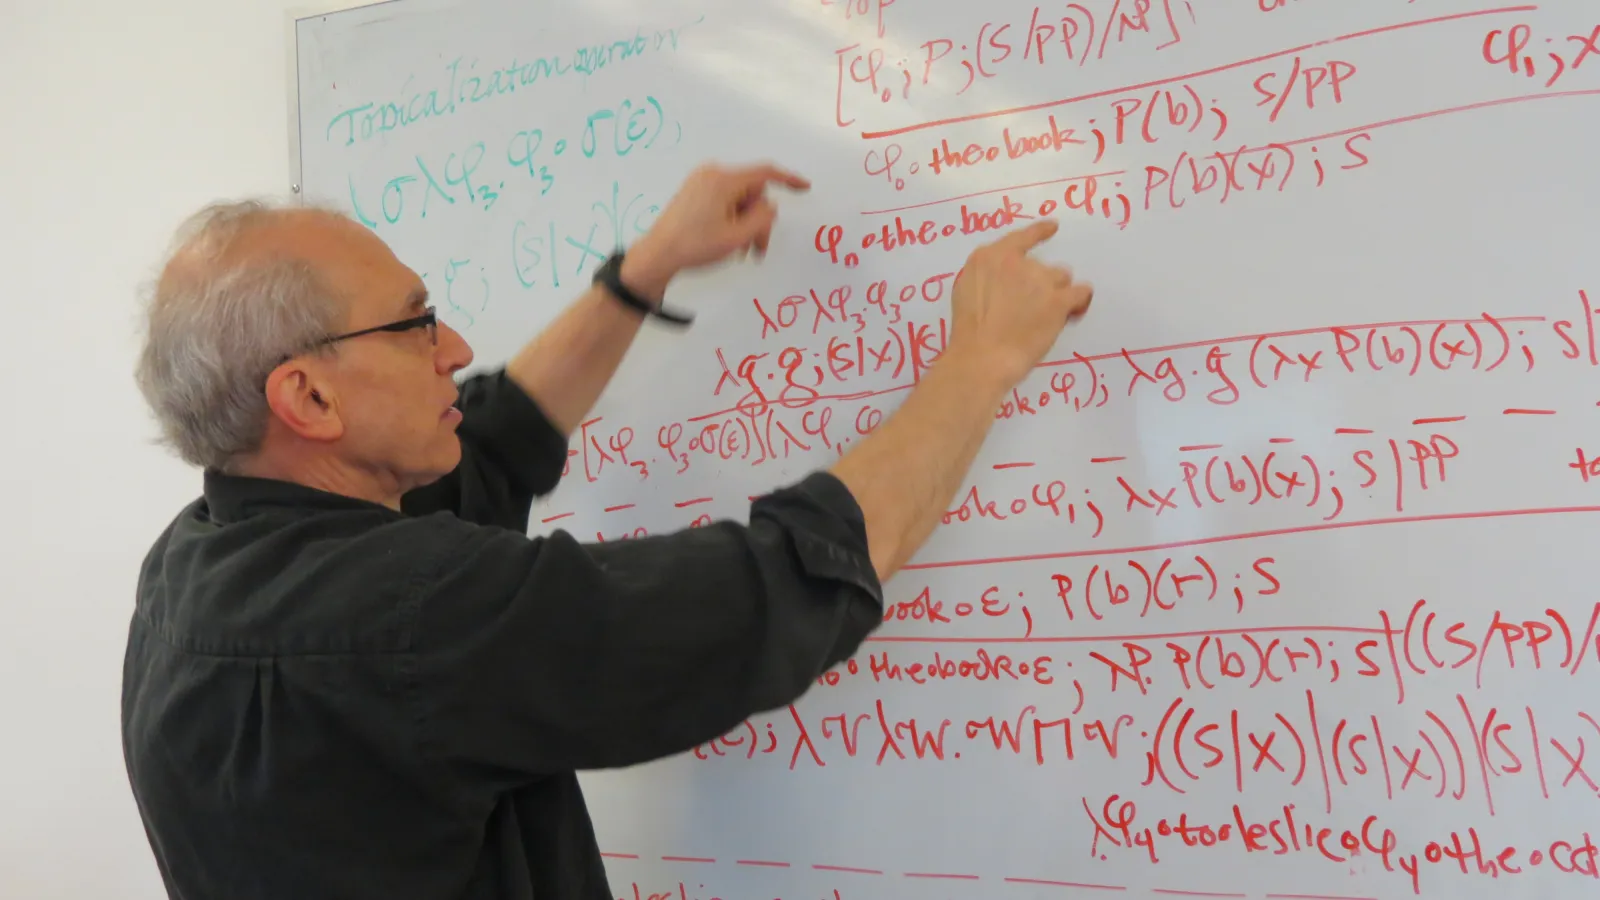 Topicalization operator
λσλφ₃. φ₃∘σ(ε);
(S|X)|(S
[φ₀; P; (S/PP)/NP]¹
φ₁; X
φ₀∘the∘book; P(b); S/PP
φ₀∘the∘book∘φ₁; P(b)(x); S
λσλφ₃. φ₃∘σ
λg.g; (S|X)|(S|
ook∘φ₁); λg.g(λx P(b)(x)); S|
[λφ₃. φ₃∘σ(ε)](λφ₁. φ
ook∘φ₁; λx P(b)(x); S|PP
to
book∘ε; P(b)(r); S
∘the∘book∘ε; λP. P(b)(r); S|((S/PP)/
λVλW. W⊓V; ((S|X)|(S|X))|(S|X
λφ₄∘to∘leslie∘φ₄∘the∘cd